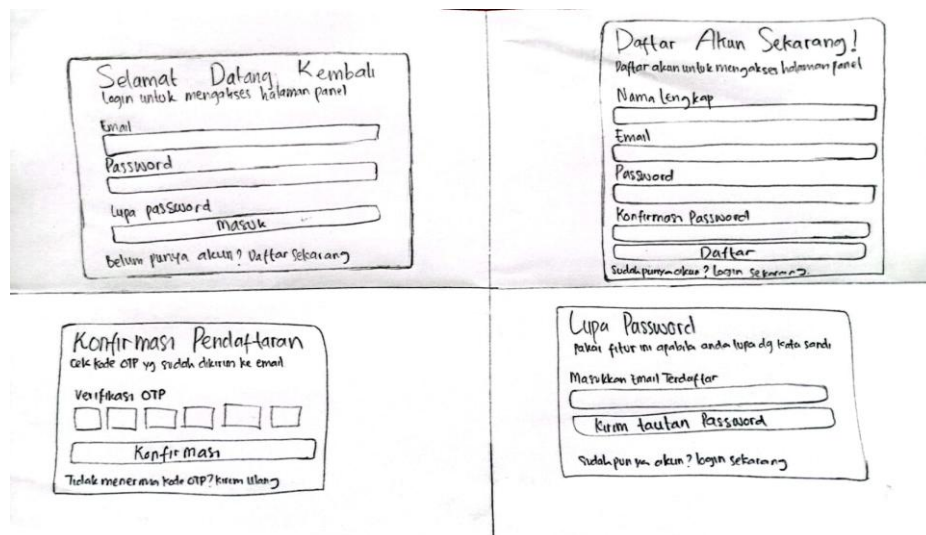 Selamat Datang Kembali
Login untuk mengakses halaman panel
Email
Password
Lupa password
Masuk
Belum punya akun? Daftar Sekarang
Daftar Akun Sekarang!
Daftar akun untuk mengakses halaman panel
Nama lengkap
Email
Password
Konfirmasi Password
Daftar
Sudah punya akun? login sekarang
Konfirmasi Pendaftaran
Cek kode OTP yg sudah dikirim ke email
Verifikasi OTP
Konfirmasi
Tidak menerima kode OTP? kirim Ulang
Lupa Password
Pakai fitur ini apabila anda lupa dg kata sandi
Masukkan Email Terdaftar
Kirim tautan Password
Sudah punya akun? login sekarang